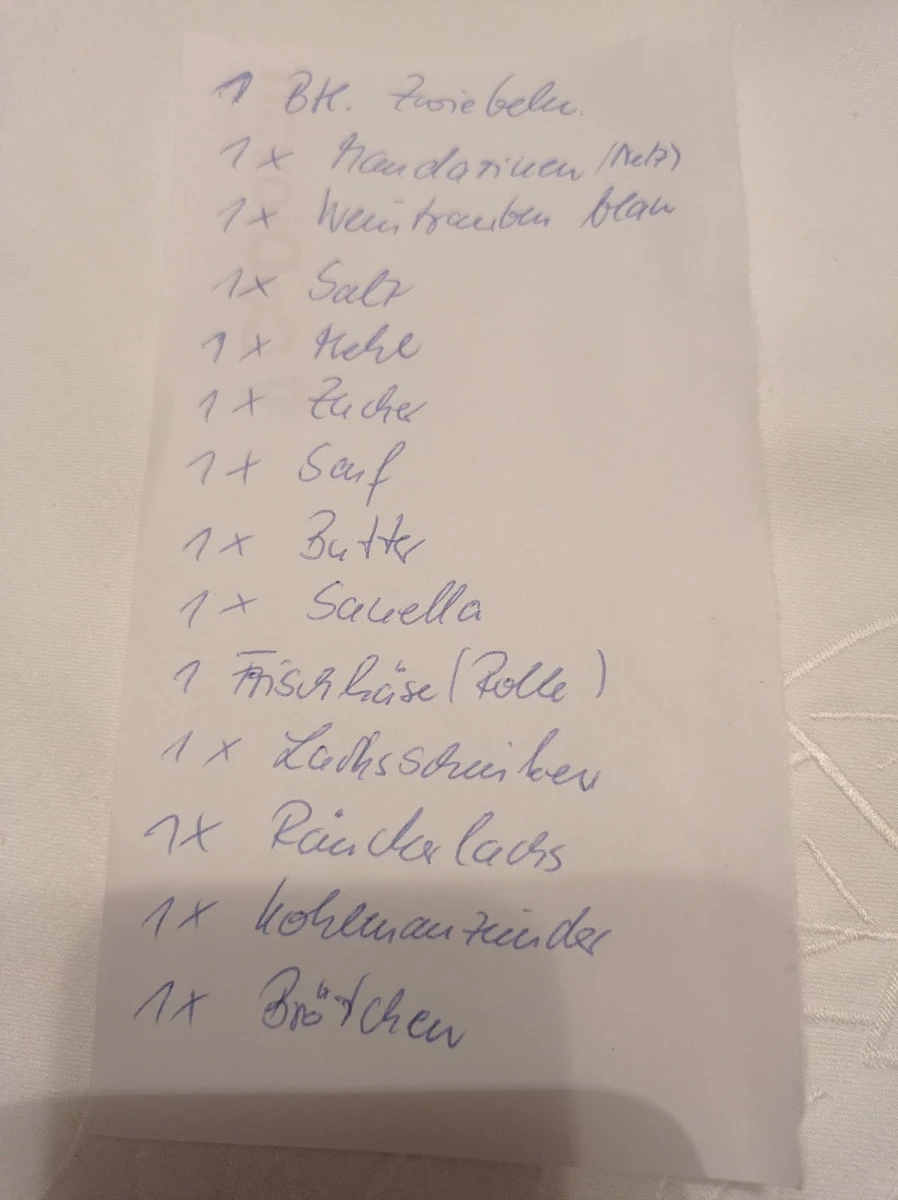 1 Btl. Zwiebeln.
1x Mandarinen (Netz)
1x Weintrauben blau
1x Salz
1x Mehl
1x Zucker
1x Senf
1x Butter
1x Sanella
1 Frischkäse (Rolle)
1x Lachsscheiben
1x Räucherlachs
1x Kohlenanzünder
1x Brötchen